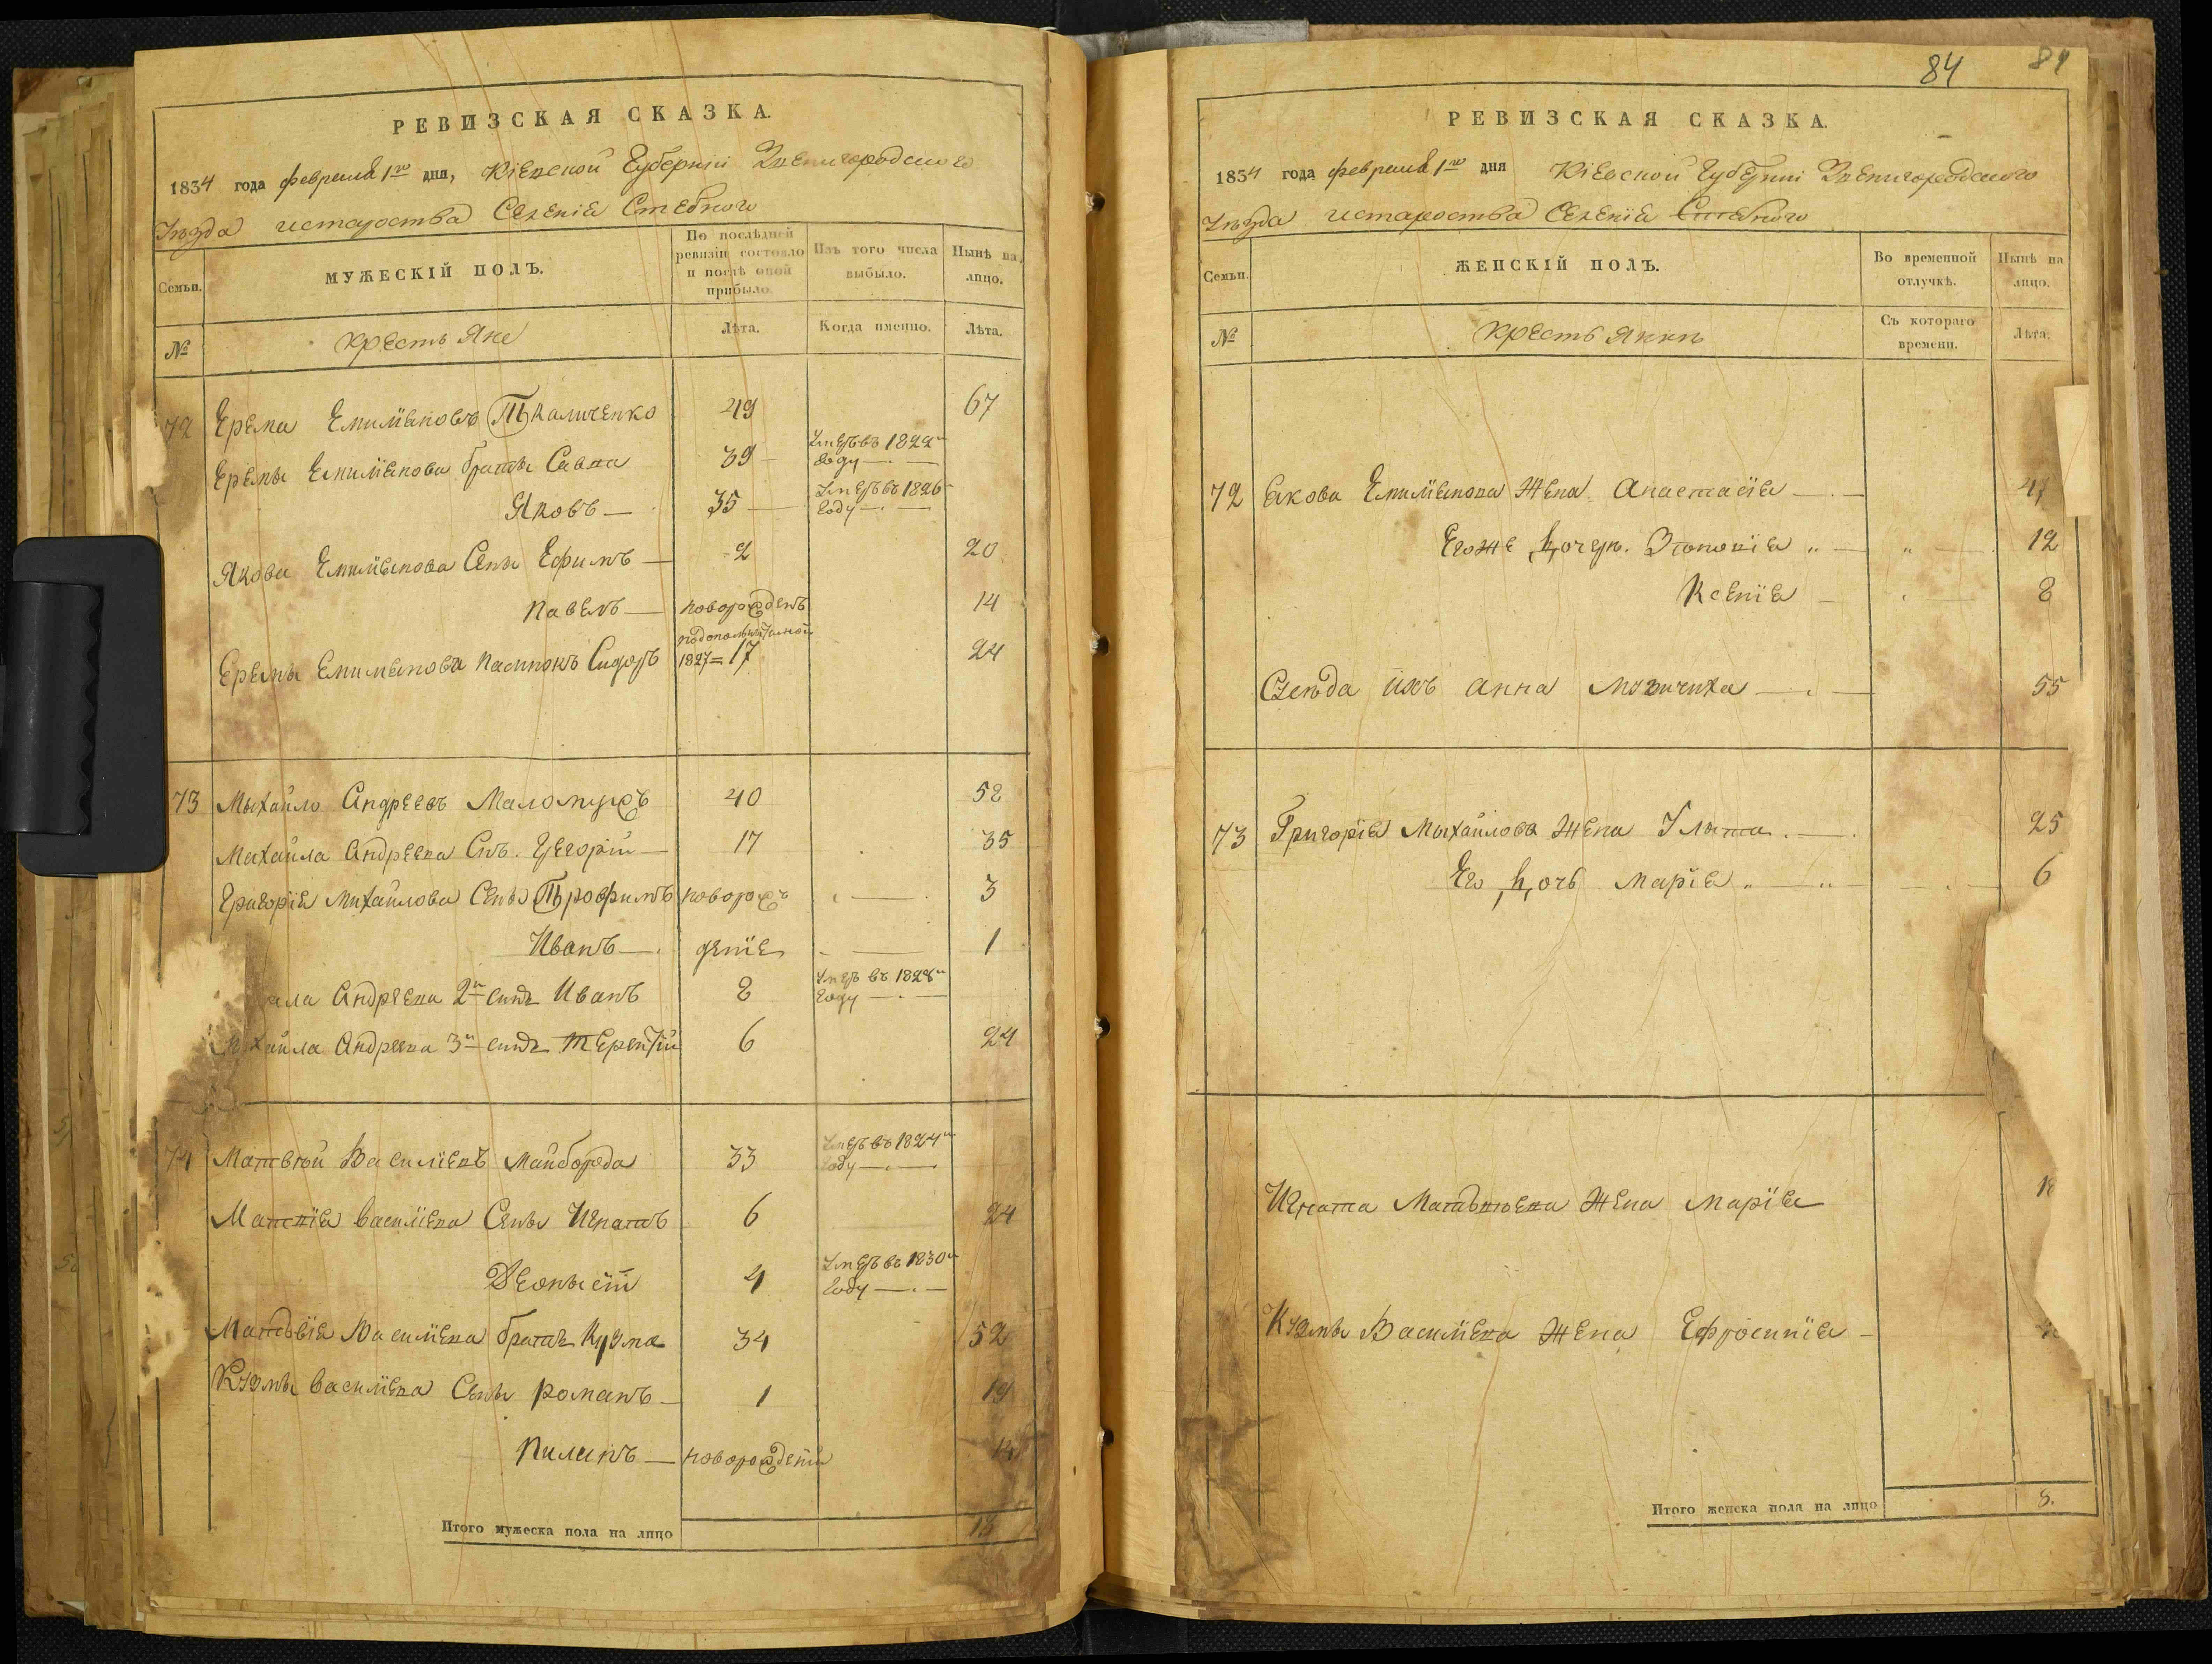 РЕВИЗСКАЯ СКАЗКА.
1834 года февраля 1го дня, Кіевской Губерніи Звенигородского
Уѣзда истароства Селенія Стебного
Семьи.
МУЖЕСКІЙ ПОЛЪ.
По послѣдней ревизіи состояло и послѣ оной прибыло.
Изъ того числа выбыло.
Нынѣ на лицо.
№
крестьяне
Лѣта.
Когда именно.
Лѣта.
72 Ерема Емиліяновъ Ткаличенко 49 67
Еремы Емиліянова братъ Савва 39 Умеръ въ 1822м году
Яковъ 35 Умеръ въ 1826 году
Якова Емиліянова Сынъ Ефимъ 2 20
Павелъ новорожденъ 14
Еремы Емиліянова пасинокъ Сидоръ 1827 17 24
73 Мыхайло Андреевъ Маломужъ 40 58
Михайла Андреева Снъ. Григорій 17 35
Григорія Михайлова Сынъ Трофимъ новорож 3
Иванъ деніе 1
йла Андреева 2й синъ Иванъ 8 Умеръ въ 1828м году
Михайла Андреева 3й синъ Терентій 6 24
74 Матвѣй Василіевъ Майборода 33 Умеръ въ 1824м году
Матвія Василіева Сынъ Игнатъ 6 24
Деонысій 4 Умеръ въ 1830м году
Матвѣія Василіева братъ Кузма 34 52
Кузмы Василіева Сынъ романъ 1 19
Пилипъ новорожденій 14
Итого мужеска пола на лицо 13
84
РЕВИЗСКАЯ СКАЗКА.
1834 года февраля 1го дня Кіевской Губерніи Звенигородского
Уѣзда истароства Селенія Стебного
Семьи.
ЖЕНСКІЙ ПОЛЪ.
Во временной отлучкѣ.
Нынѣ на лицо.
№
крестьянки
Съ котораго времени.
Лѣта.
72 Якова Емиліянова Жена Анастасія 47
Егоже дочери. 12
Ксенія 8
ихъ анна 55
73 Григорія Мыхайлова Жена Уляна 25
Его дочь Марія 6
Игната Матвѣева Жена Марія 18
Кузмы Василіева Жена Ефросинія
Итого женска пола на лицо 8.